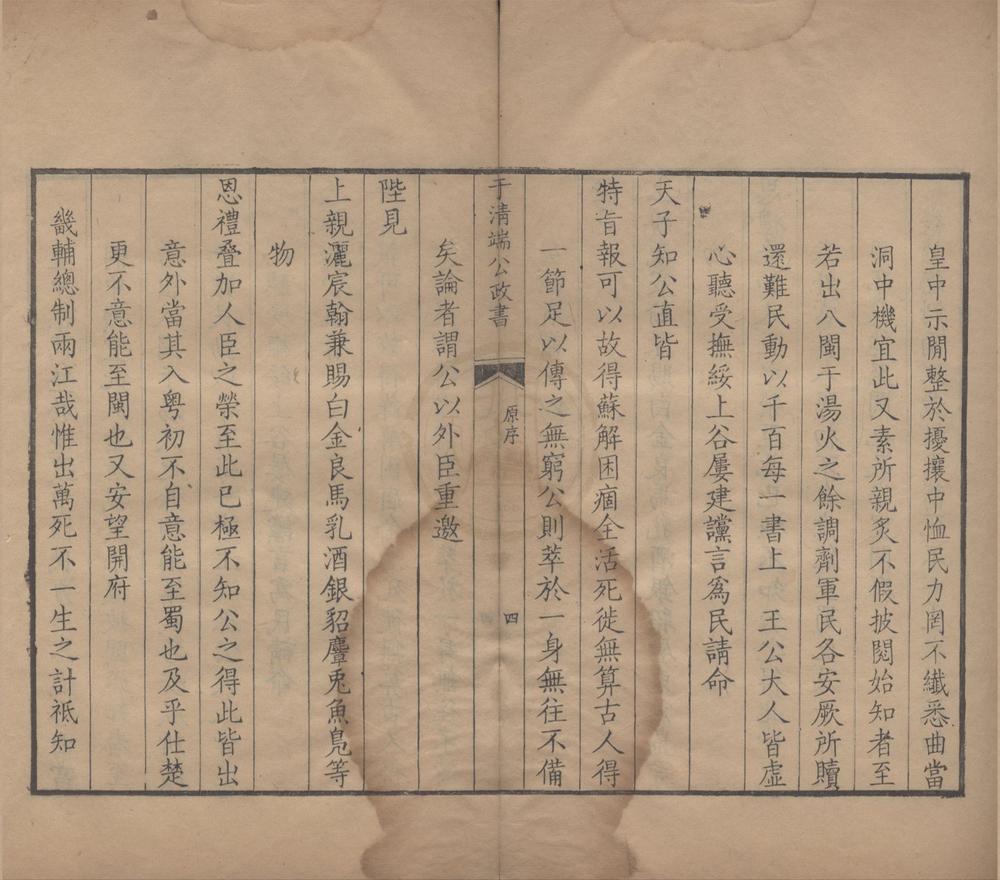 皇中示閒整於擾攘中恤民力罔不纖悉曲當
洞中機宜此又素所親炙不假披閱始知者至
若出八閩于湯火之餘調劑軍民各安厥所贖
還難民動以千百每一書上 王公大人皆虛
心聽受撫綏上谷屢建讜言爲民請命
天子知公直皆
特旨報可以故得蘇解困痼全活死徙無算古人得
一節足以傳之無窮公則萃於一身無往不備
于清端公政書 原序 四
矣論者謂公以外臣重邀
陛見
上親灑宸翰兼賜白金良馬乳酒銀貂麞兎魚鳧等
物
恩禮叠加人臣之榮至此已極不知公之得此皆出
意外當其入粤初不自意能至蜀也及乎仕楚
更不意能至閩也又安望開府
畿輔總制兩江哉惟出萬死不一生之計祗知